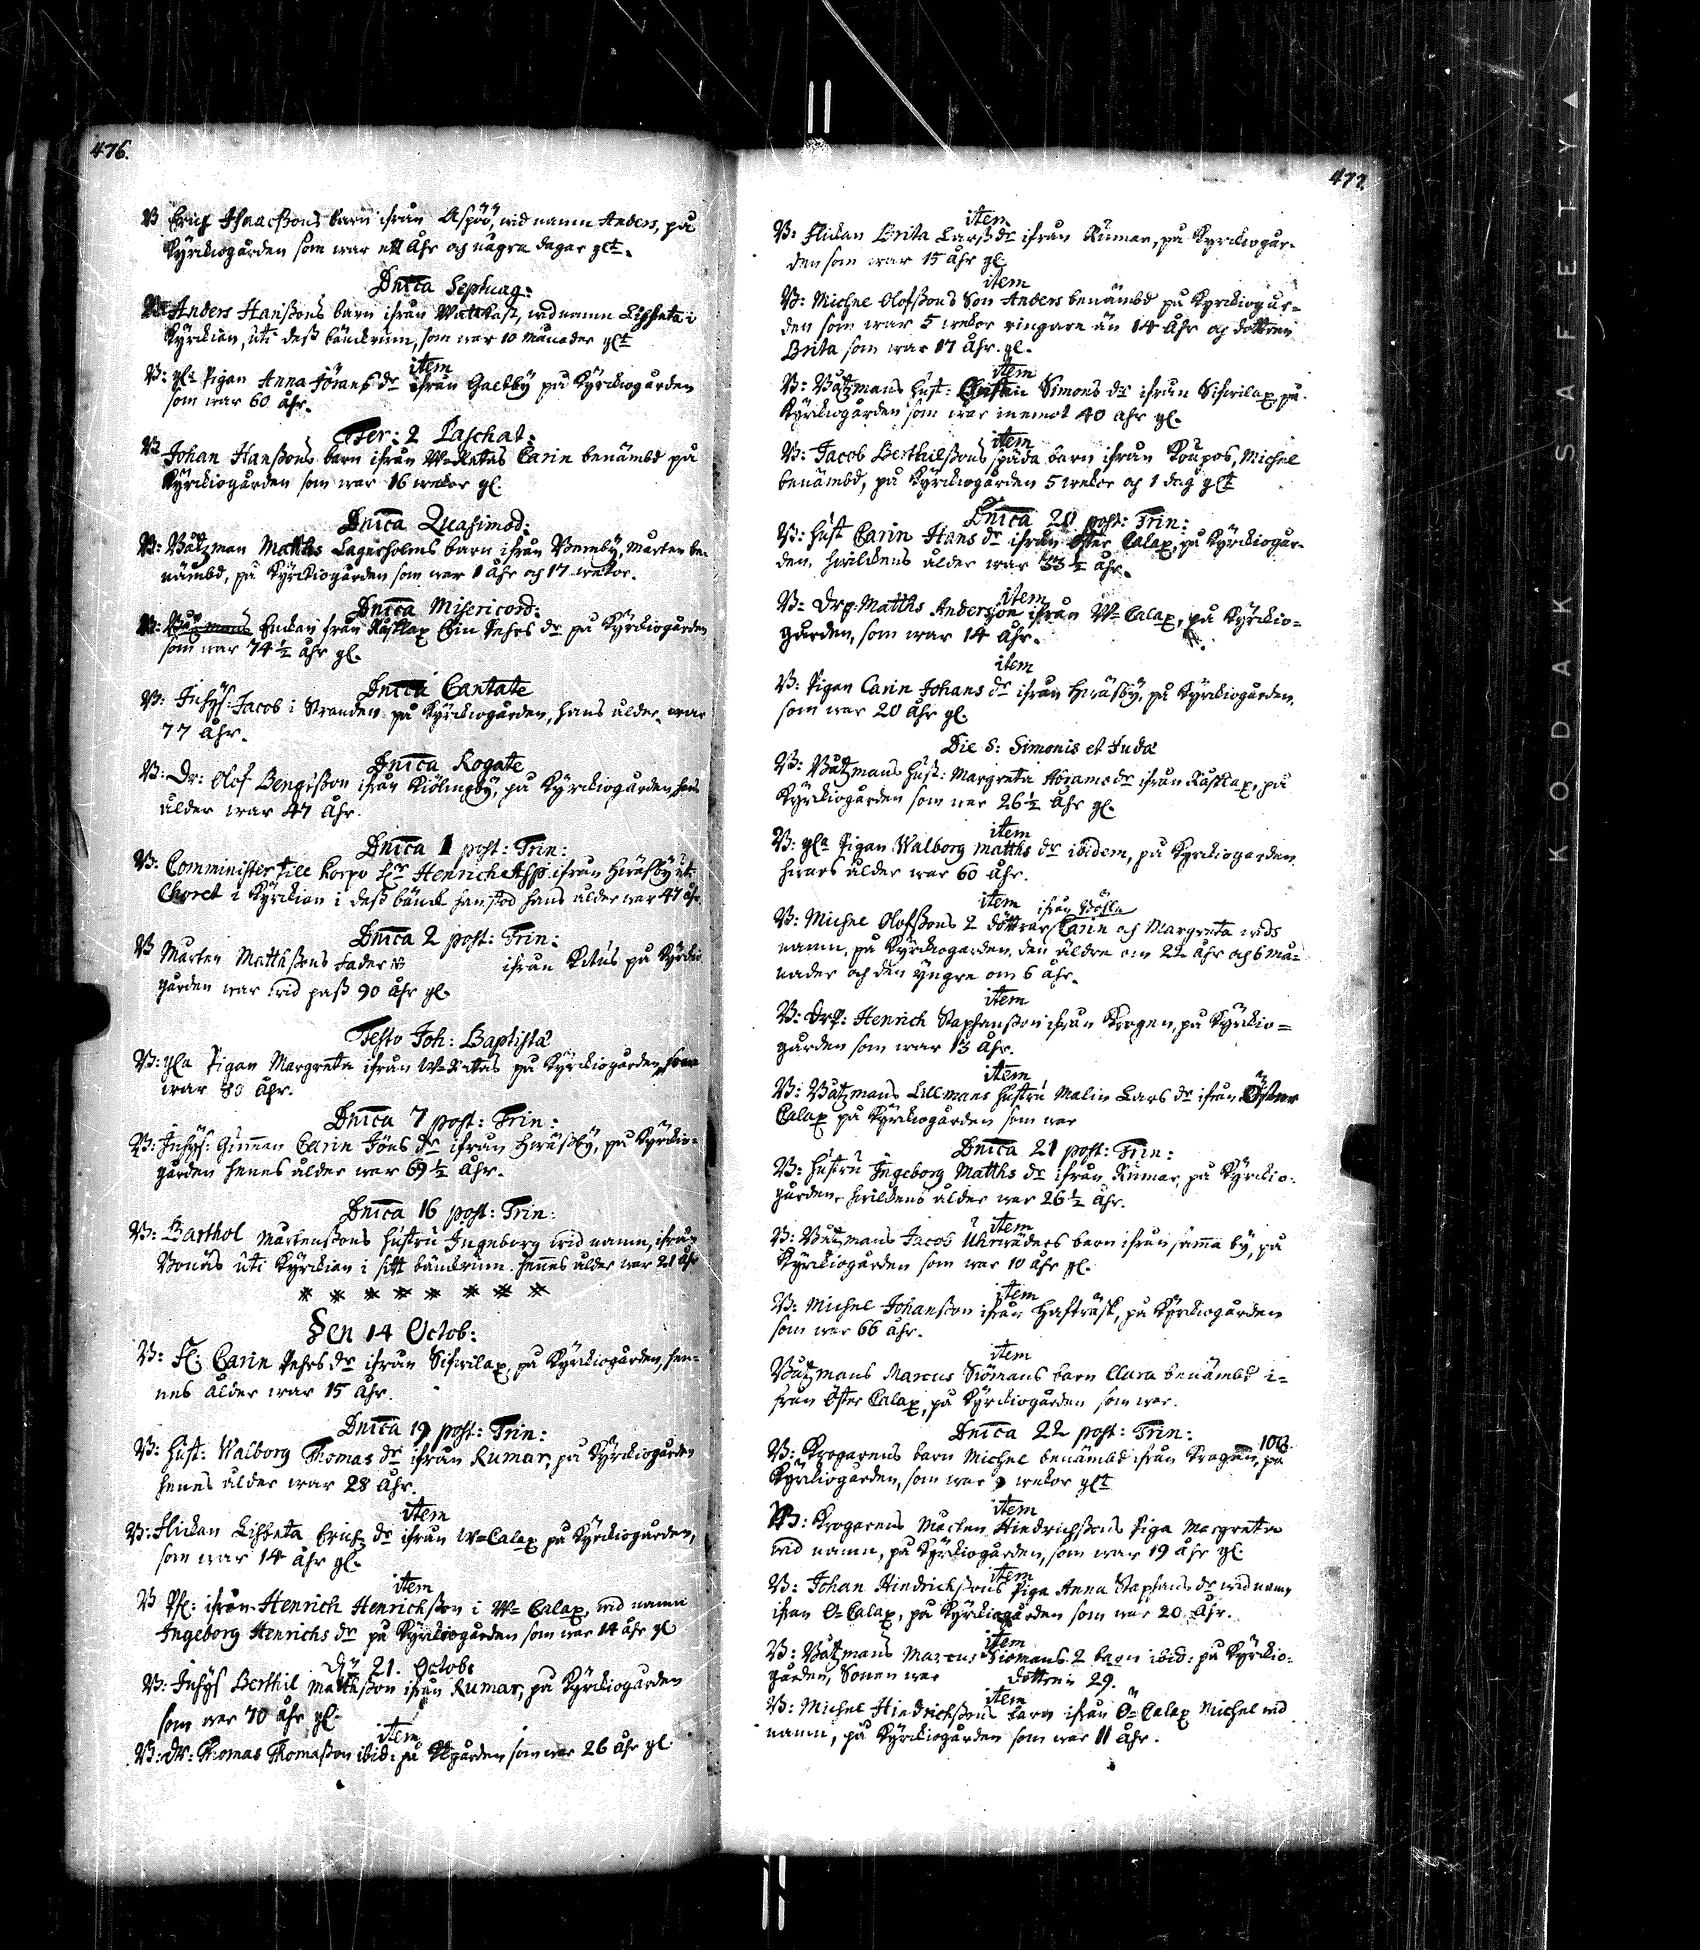 476.
B Erich Isaacßons barn ifrån Aspöö, vid namn Anders, på
Kyrkiogården som war ett åhr och några dagar glt.
Dnica Septuag:
Anders Hanßons barn ifrån Wattkast, wid namn Lisbeta i
Kyrkian, uti deß bänkrum, som war 10 månader glt
item
B: gla Pigan Anna Jörans dr ifrån Galtby på Kyrkiogården
som war 60 åhr.
Fer: 2 Paschat:
B Johan Hanßons barn ifrån W=Retas Carin benämbd på
Kyrkiogården som war 16 wekor gl.
Dnica Quasimod:
B: Båtzman Matths Lagerholms barn ifrån Bemby, Mårten be-
nämbd, på Kyrkiogården som war 1 åhr och 17 wekor.
Dnica Misericord:
B: Enckan från Käslax Pehrs dr på Kyrkiogården
som war 74 ½ åhr gl.
Dnica Cantate
B: Inhys: Jacob i Stranden på Kyrkiogården, hans ålder war
77 åhr.
Dnica Rogate
B: Dr: Olof Bengtßon ifrån Kiölingby, på Kyrkiogården, hans
ålder war 47 åhr.
Dnica 1 post: Trin:
B: Comminister till Korpo Hr Henrich Asp ifrån Hwäsby uti
Choret i Kyrkian i deß bänck han stod hans ålder war 47 åhr.
Dnica 2 post: Trin:
B Mårten Matthßons fader ifrån Retais på Kyrkio
gården war wid paß 90 åhr gl.
Festo Joh: Baptistæ
B: gla Pigan Margreta ifrån W=Retas på Kyrkiogården, som
war 80 åhr.
Dnica 7 post: Trin:
B: Inhys: Gumman Carin Jöns dr ifrån Hwäsby, på Kyrkio-
gården henes ålder war 69 ½ åhr.
Dnica 16 post: Trin:
B: Barthol Mårtenßons hustru Ingeborg wid namn, ifrån
Bonäs uti Kyrkian i sitt bänkrum. henes ålder war 21 åhr
* * * * * * * *
Den 14 Octob:
B: Fl: Carin Pehrs dr ifrån Sifwilax, på Kyrkiogården, hen-
nes ålder war 15 åhr.
Dnica 19 post: Trin:
B: Hust: Walborg Thomas dr ifrån Rumar, på Kyrkiogården
henes ålder war 28 åhr.
item
B: Flickan Lisbeta Erichs dr ifrån W=Calax på Kyrkiogården,
som war 14 åhr gl.
item
B Pf: ifrån Henrich Henrichßon i W= Calax, wid namn
Ingeborg Henrichs dr på Kyrkiogården som war 14 åhr gl
d. 21. Octob:
B: Inhys Berthil Matthßon ifrån Rumar, på Kyrkiogården
som war 70 åhr gl.
item
B: Dr: Thomas Thomaßon ibid: på Kgården som war 26 åhr gl
477.
item
B: Flickan Brita Larß dr ifrån Rumar, på Kyrkiogår-
den som war 15 åhr gl
item
B: Michel Olofßons Son Anders benämbd på Kyrkiogår-
den som war 5 wekor ringare än 14 åhr och dottren
Brita som war 17 åhr. gl.
item
B: Båtzmans hust: Simons dr ifrån Sifwilax, på
Kyrkiogården som war inemot 40 åhr gl.
item
B: Jacob Berthilßons späda barn ifrån Roupos, Michel
benämbd, på Kyrkiogården 5 wekor och 1 dag glt
Dnica 20 post: Trin:
B: hust Carin Hans dr ifrån öster Calax, på Kyrkiogår-
den, hwilckens ålder war 33 ½ åhr.
item
B= Drg: Matths Anderson ifrån W= Calax, på Kyrkio=
gården, som war 14 åhr.
item
B: Pigan Carin Johans dr ifrån Hwäsby, på Kyrkiogården,
som war 20 åhr gl.
Die S: Simonis et Judæ
B: Båtzmans hust: Margreta Abrams dr ifrån Käslax, på
Kyrkiogården som war 26 ½ åhr gl.
item
B: gla Pigan Walborg Matths dr ibidem, på Kyrkiogården.
hwars ålder war 60 åhr.
item ifrån
B: Michel Olofßons 2 döttrar Carin och Margreta wids
namn, på Kyrkiogården, den äldre om 22 åhr och 6 må=
nader och den yngre om 6 åhr.
item
B: Drg: Henrich Staphanßon ifrån Krogen, på Kyrkio=
gården som war 13 åhr.
item
B: Båtzmans Lillmans hustru Malin Lars dr ifrån Öster
Calax på Kyrkiogården som war
Dnica 21 post: Trin:
B: hustru Ingeborg Matths dr ifrån Rumar, på Kyrkio-
gården, hwilckens ålder war 26 ½ åhr.
item
B: Båtzmans Jacob Uhrwäders barn ifrån samma by, på
Kyrkiogården som war 10 åhr gl.
item
B: Michel Johanßon ifrån Hafträsk, på Kyrkiogården
som war 66 åhr.
item
Båtzmans Marcus Siömans barn Clara benämbd i=
från öster Calax, på Kyrkiogården som war.
Dnica 22 post: Trin:
B: Krogarens barn Michel benämbd ifrån Krogen, på
Kyrkiogården, som war 9 wekor glt
item
B: Krogarens Mårten Hindrichßons Piga Margreta
wid namn, på Kyrkiogården, som war 19 åhr gl
item
B: Johan Hindrichßons Piga Anna Staphans dr wid namn
ifrån Ö=Calax, på Kyrkiogården som war 20 åhr.
item
B: Båtzmans Marcus Siömans 2 barn ibid: på Kyrkio-
gården, Sonen war dottren 29.
item
B: Michel Hindrichßons barn ifrån Ö=Calax Michel wid
namn, på Kyrkiogården som war 11 åhr.
KODAK SAFETY